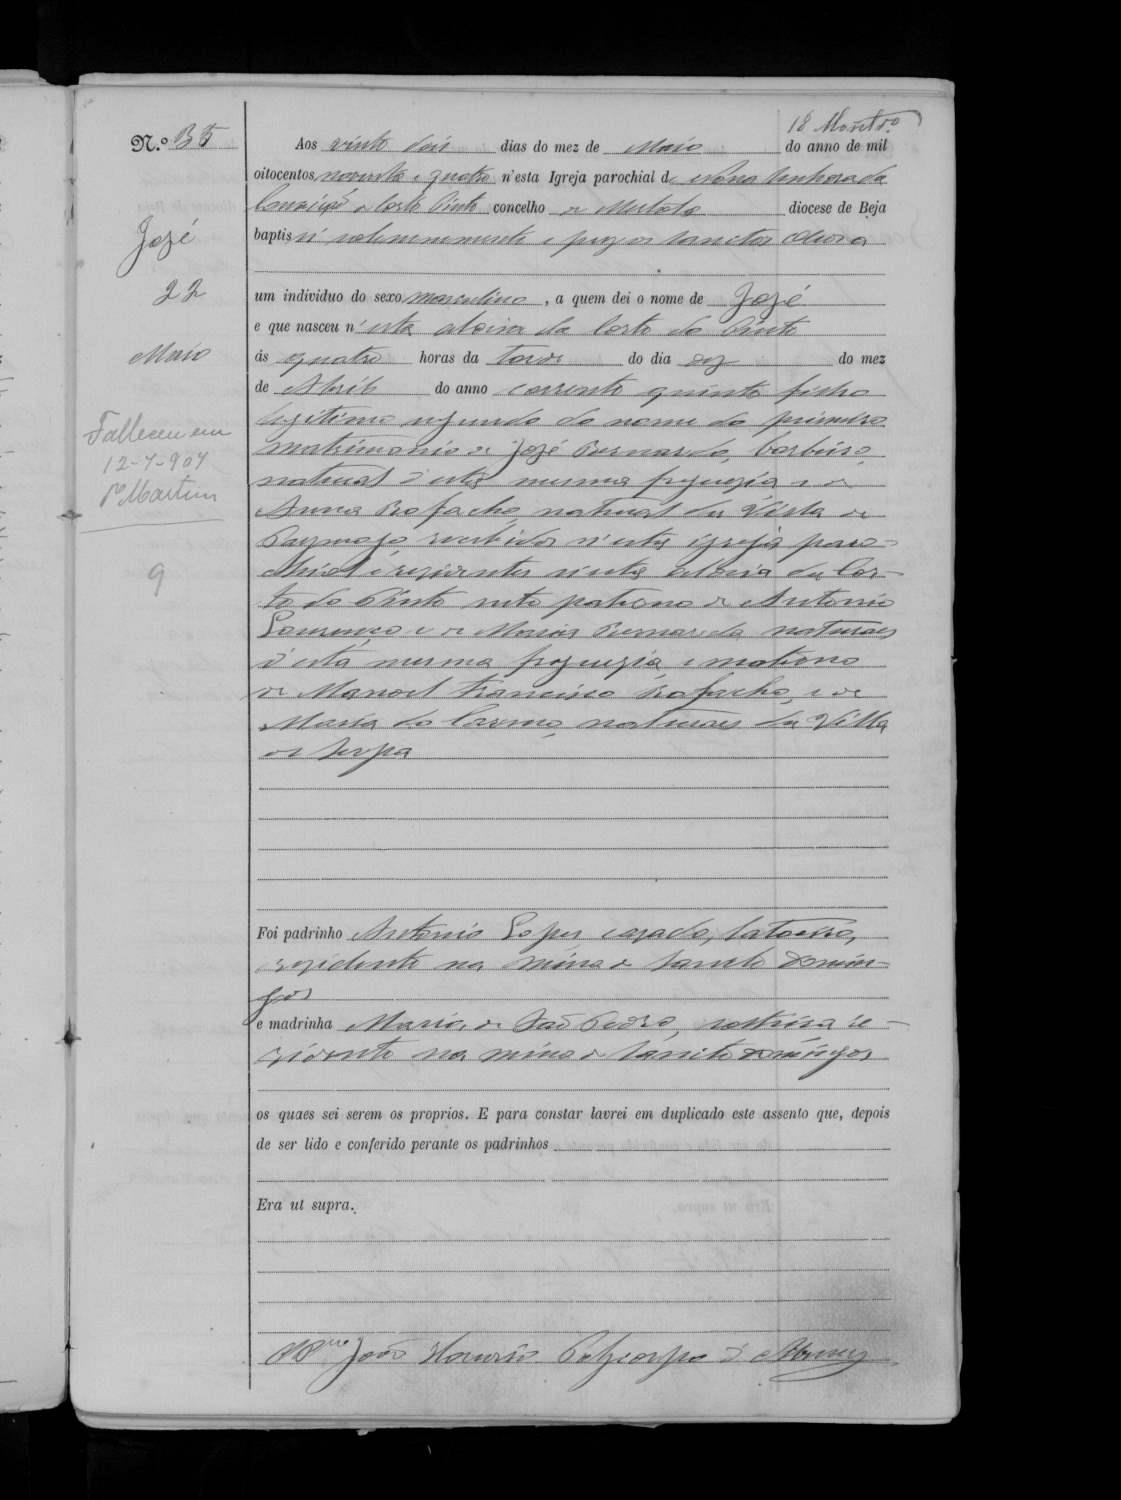 18 Montr.º
N.º 35
Aos vinte dois dias do mez de Maio do anno de mil
oitocentos noventa e quatro n'esta Igreja parochial de Nossa Senhora da
Conceição Corte Pinto concelho de Mertola diocese de Beja
baptisei solemnemente e puz os sanctos oleos
José
22
Maio
um individuo do sexo masculino, a quem dei o nome de José
e que nasceu n'esta aldeia da Corte do Pinto
ás quatro horas da tarde do dia dez do mez
de Abril do anno corrente quinto filho
legitimo segundo do nome do primeiro
matrimonio de José Bernardo, barbeiro,
natural d'esta mesma freguezia e de
Anna Rofacho, natural da Villa de
Paymogo recebidos n'esta igreja paro-
chial e rezidentes n'esta aldeia da Cor-
te do Pinto neto paterno de Antonio
Lourenço e de Maria Bernarda naturaes
d'esta mesma freguezia, e materno
de Manoel Francisco Rofacho, e de
Maria do Carmo, naturaes da Villa
de Serpa
Falleceu em
12-7-907
P.e Martins
9
Foi padrinho Antonio Lopes casado, latoeiro,
rezidente na mina de Sancto Domin-
gos
e madrinha Maria de São Pedro, solteira re-
zidente na mina de Sancto Domingos
os quaes sei serem os proprios. E para constar lavrei em duplicado este assento que, depois
de ser lido e conferido perante os padrinhos
Era ut supra.
João Polycarpo d'